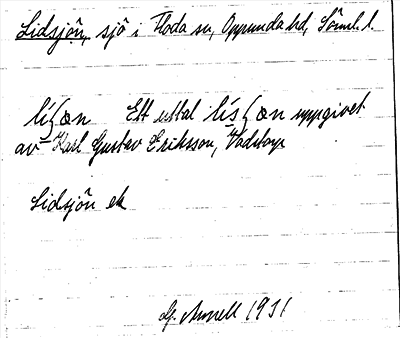 Lidsjön, sjö i Floda sn, Oppunda hd, Söml. l.
líʃœn Ett uttal lísʃœn uppgivet
av Karl Gustav Eriksson, Vadstorp
Lidsjön ek
1931